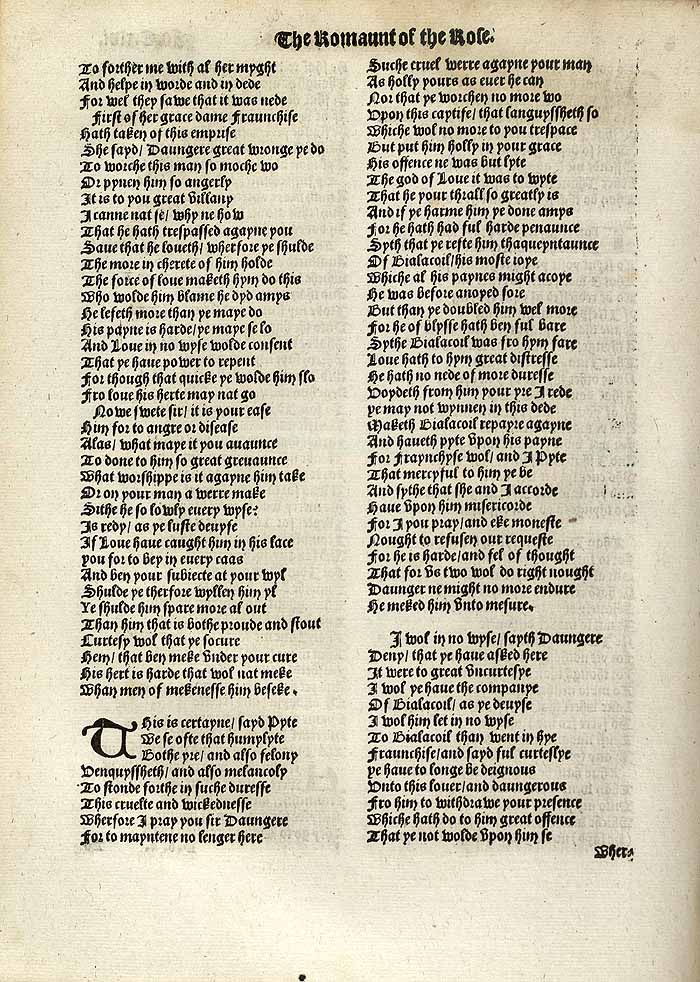 The Romaunt of the Rose.
To forther me with al her myght
And helpe in worde and in dede
For wel they sawe that it was nede
First of her grace dame Fraunchise
Hath taken of this emprise
She sayd/ Daungere great wronge ye do
To worche this man so moche wo
Or pynen him so angerly
It is to you great villany
I canne nat se/ why ne how
That he hath trespassed agayne you
Save that he loveth/ wherfore ye shulde
The more in cherete of him holde
The force of love maketh hym do this
Who wolde him blame he dyd amys
He leseth more than ye maye do
His payne is harde/ ye maye se lo
And Love in no wyse wolde consent
That ye have power to repent
For though that quicke ye wolde him slo
Fro love his herte may nat go
Nowe swete sir/ it is your ease
Him for to angre or disease
Alas/ what maye it you avaunce
To done to him so great grevaunce
What worshippe is it agayne him take
Or on your man a werre make
Sithe he so lowly every wyse?
Is redy/ as ye luste devyse
If Love have caught him in his lace
you for to bey in every caas
And ben your subiecte at your wyl
Shulde ye therfore wyllen him yl
Ye shulde him spare more al out
Than him that is bothe proude and stout
Curtesy wol that ye socure
Hem/ that ben meke under your cure
His hert is harde that wol nat meke
Whan men of mekenesse him beseke.
THis is certayne/ sayd Pyte
We se ofte that humylyte
Bothe yre/ and also felony
Venquyssheth/ and also melancoly
To stonde forthe in suche duresse
This cruelte and wickednesse
Wherfore I pray you sir Daungere
For to mayntene no lenger here
Suche cruel werre agayne your man
As holly yours as ever he can
Nor that ye worchen no more wo
Vpon this captife/ that languyssheth so
Whiche wol no more to you trespace
But put him holly in your grace
His offence ne was but lyte
The god of Love it was to wyte
That he your thrall so greatly is
And if ye harme him ye done amys
For he hath had ful harde penaunce
Syth that ye refte him thaqueyntaunce
Of Bialacoil/ his moste ioye
Whiche al his paynes might acoye
He was before anoyed sore
But than ye doubled him wel more
For he of blysse hath ben ful bare
Sythe Bialacoil was fro hym fare
Love hath to hym great distresse
He hath no nede of more duresse
Voydeth from him your yre I rede
ye may not wynnen in this dede
Maketh Bialacoil repayre agayne
And haveth pyte vpon his payne
For Fraynchyse wol/ and I Pyte
That mercyful to him ye be
And sythe that she and I accorde
Have vpon him misericorde
For I you pray/ and eke moneste
Nought to refusen our requeste
For he is harde/ and fel of thought
That for vs two wol do right nought
Daunger ne might no more endure
He meked him vnto mesure.
I wol in no wyse/ sayth Daungere
Deny/ that ye have asked here
It were to great vncurtesye
I wol ye have the companye
Of Bialacoil/ as ye devyse
I wol him let in no wyse
To Bialacoil than went in hye
Fraunchise/ and sayd ful curteslye
ye have to longe be deignous
Vnto this lover/ and daungerous
Fro him to withdrawe your presence
Whiche hath do to him great offence
That ye not wolde vpon him se
Wher=